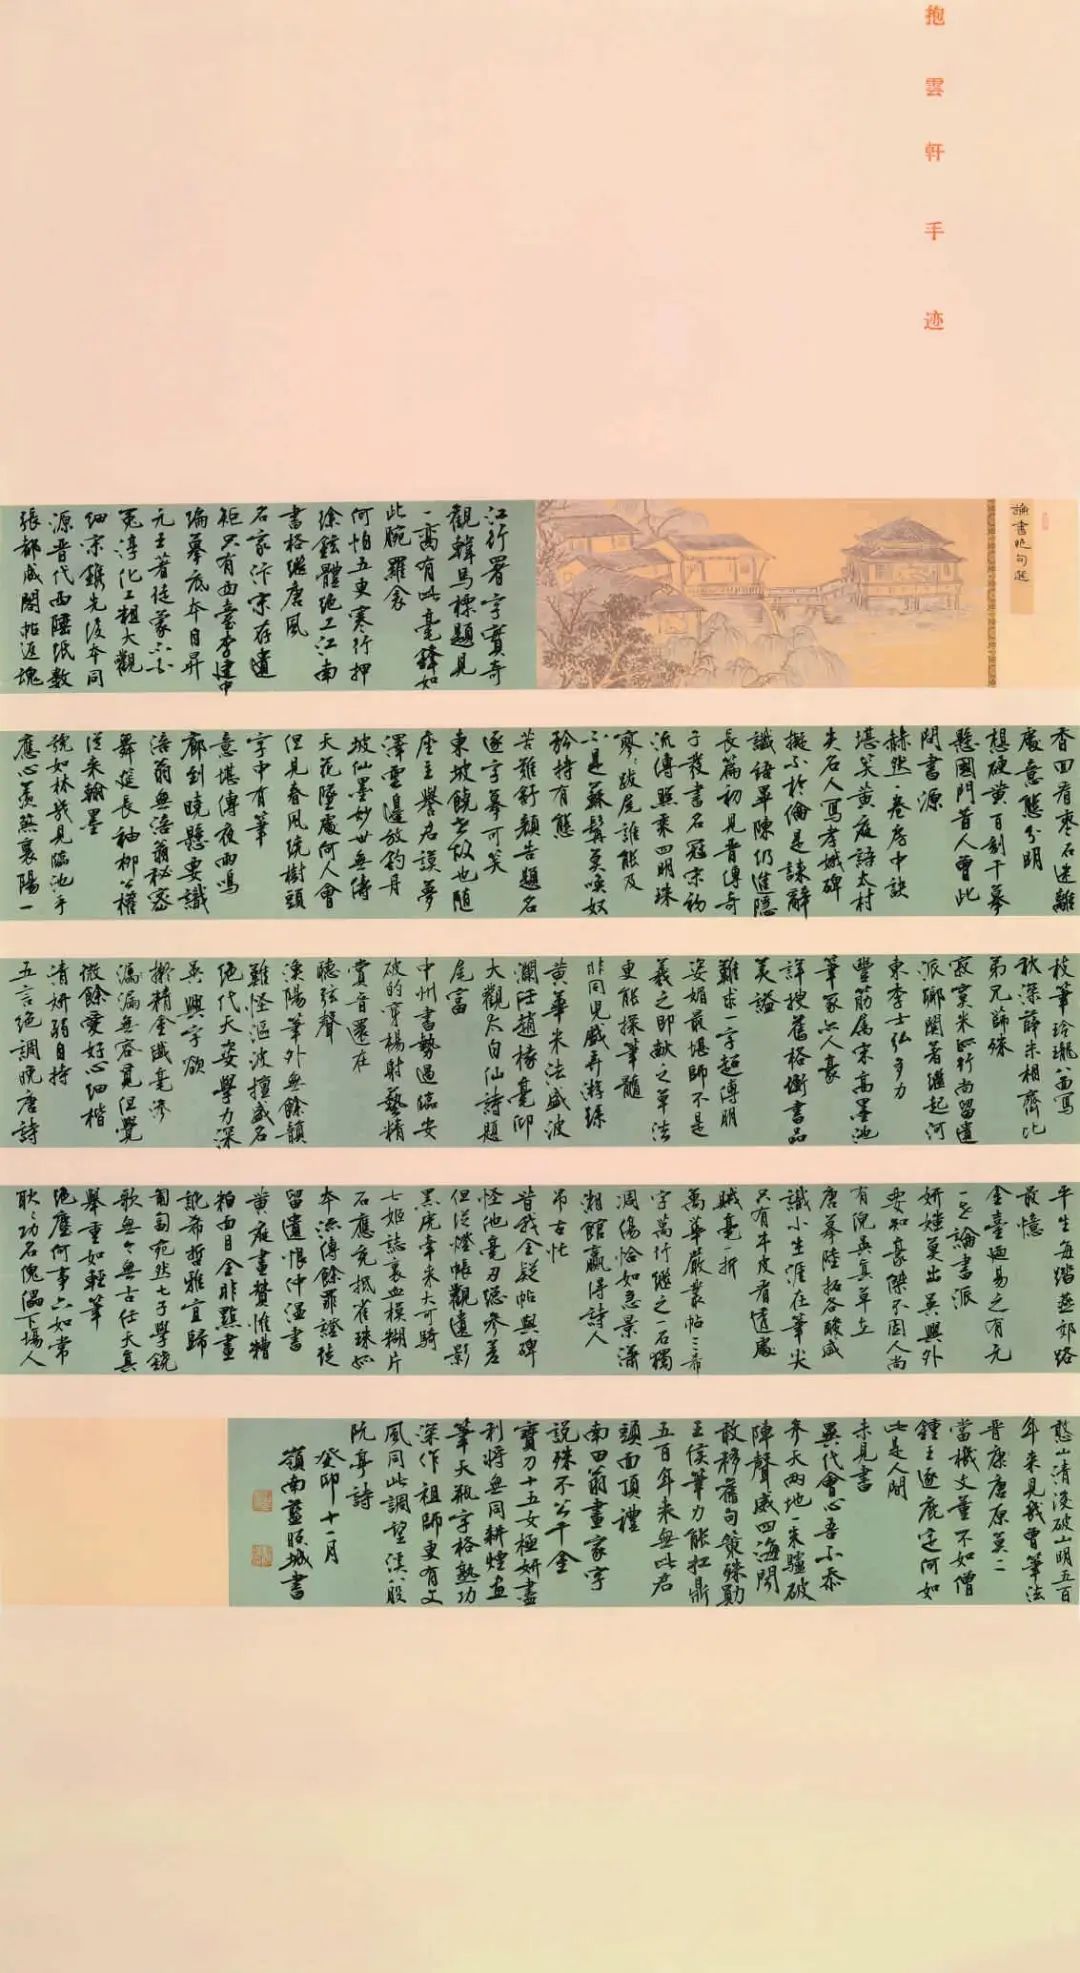 抱雲軒手迹
論書絶句選
江行署字寳奇
觀韓馬標題見
一斑有此毫鋒如
此腕羅衾
何怕五更寒行押
徐鉉體絶工江南
書格継唐風
名家汴宋存遺
矩只有西臺李建中
編摹底本自昇
元王著徒蒙不白
冤淳化工粗大觀
細宋鐫先後本同
源晋代西陲紙數
張都成閣帖返魂
香回看棗石迷離
處意態分明
想硬黄百刻千摹
懸國門昔人曾此
問書源
赫然一卷房中訣
堪笑黄庭語太村
夫石人寫孝娥碑
擬不於倫是諛辭
讖語單陳仍進隱
長篇初見晋傳奇
子發書名冠宋初
流傳照乘四明珠
寥寥跋尾誰能及
不是蘇髯莫喚奴
矜持有態
苦難舒顏告題名
逐字摹可笑
東坡饒世故也随
座主譽君謨夢
澤雲邊放釣舟
坡仙墨妙世無儔
天花墜處何人會
但見春風繞樹頭
字中有筆
意堪傳夜雨鳴
廊到曉懸要識
涪翁無涪翁秘密
舞筵長袖柳公權
從来翰墨
號如林幾見臨池手
應心羡煞襄陽一
枝筆玲瓏八面寫
秋深薛米相齊比
弟兄薛殊
寂寞米風行尚留遺
派瑯閣著継起河
東李士弘多力
豐筋属宋高墨池
筆冢亦人豪
詳搜舊格衡書品
美謚
難求一字超傅朋
姿媚最堪師不是
羲之即獻之草法
更能探筆髓
非同兒戲弄游絲
黄華米法盛波
瀾任趙椽毫仰
大觀太白仙詩題
尾富
中州書勢過臨安
破的穿楊射藝精
賞音還在
聽弦聲
溪陽筆外無餘韻
難怪漚波擅盛名
絶代天姿學力深
吳興字欲
擬精金纖毫滲
漏漏無容覓但覺
微餘愛好心細楷
清妍弱自持
五言絶調晩唐詩
平生每踏燕郊路
最憶
金臺廼易之有元
一世論書派
妍媸莫出吳興外
要知豪傑不囿人尚
有倪吳真草在
唐摹陸拓各酸咸
識小生涯在筆尖
只有牛皮看透處
賊毫一折
萬華嚴叢帖三希
字萬行継之一石獨
凋傷恰如急景瀟
湘館贏得詩人
吊古忙
昔我全疑帖與碑
怪他毫刃總参差
但從燈帳觀遺影
黑虎牽来大可騎
七姬誌裏血模糊片
石應充抵雀珠孤
本流傳餘罪證徒
留遺恨仲温書
黄庭畫贊惟糟
粕面目全非點畫
訛希哲雅宜歸
匍匐宛然七子學鐃
歌無今無古任天真
舉重如輕筆
絶塵何事六如常
耿耿功名傀儡下場人
憨山清後破山明五百
年来見幾曾筆法
晋唐唐原莫二
當機文董不如僧
鍾王逐鹿定何如
此是人間
未見書
異代會心吾不忝
参天兩地一朱驢破
陣聲威四海聞
敢移舊句策殊勳
王侯筆力能扛鼎
五百年来無此君
頭面頂禮
南田翁畫家字
説殊不公千金
寳刀十五女極妍盡
利將無同耕煙畫
筆天瓶字格熟功
深作祖師更有文
風同此調望溪八股
阮亭詩
癸卯十一月
嶺南藍照城書